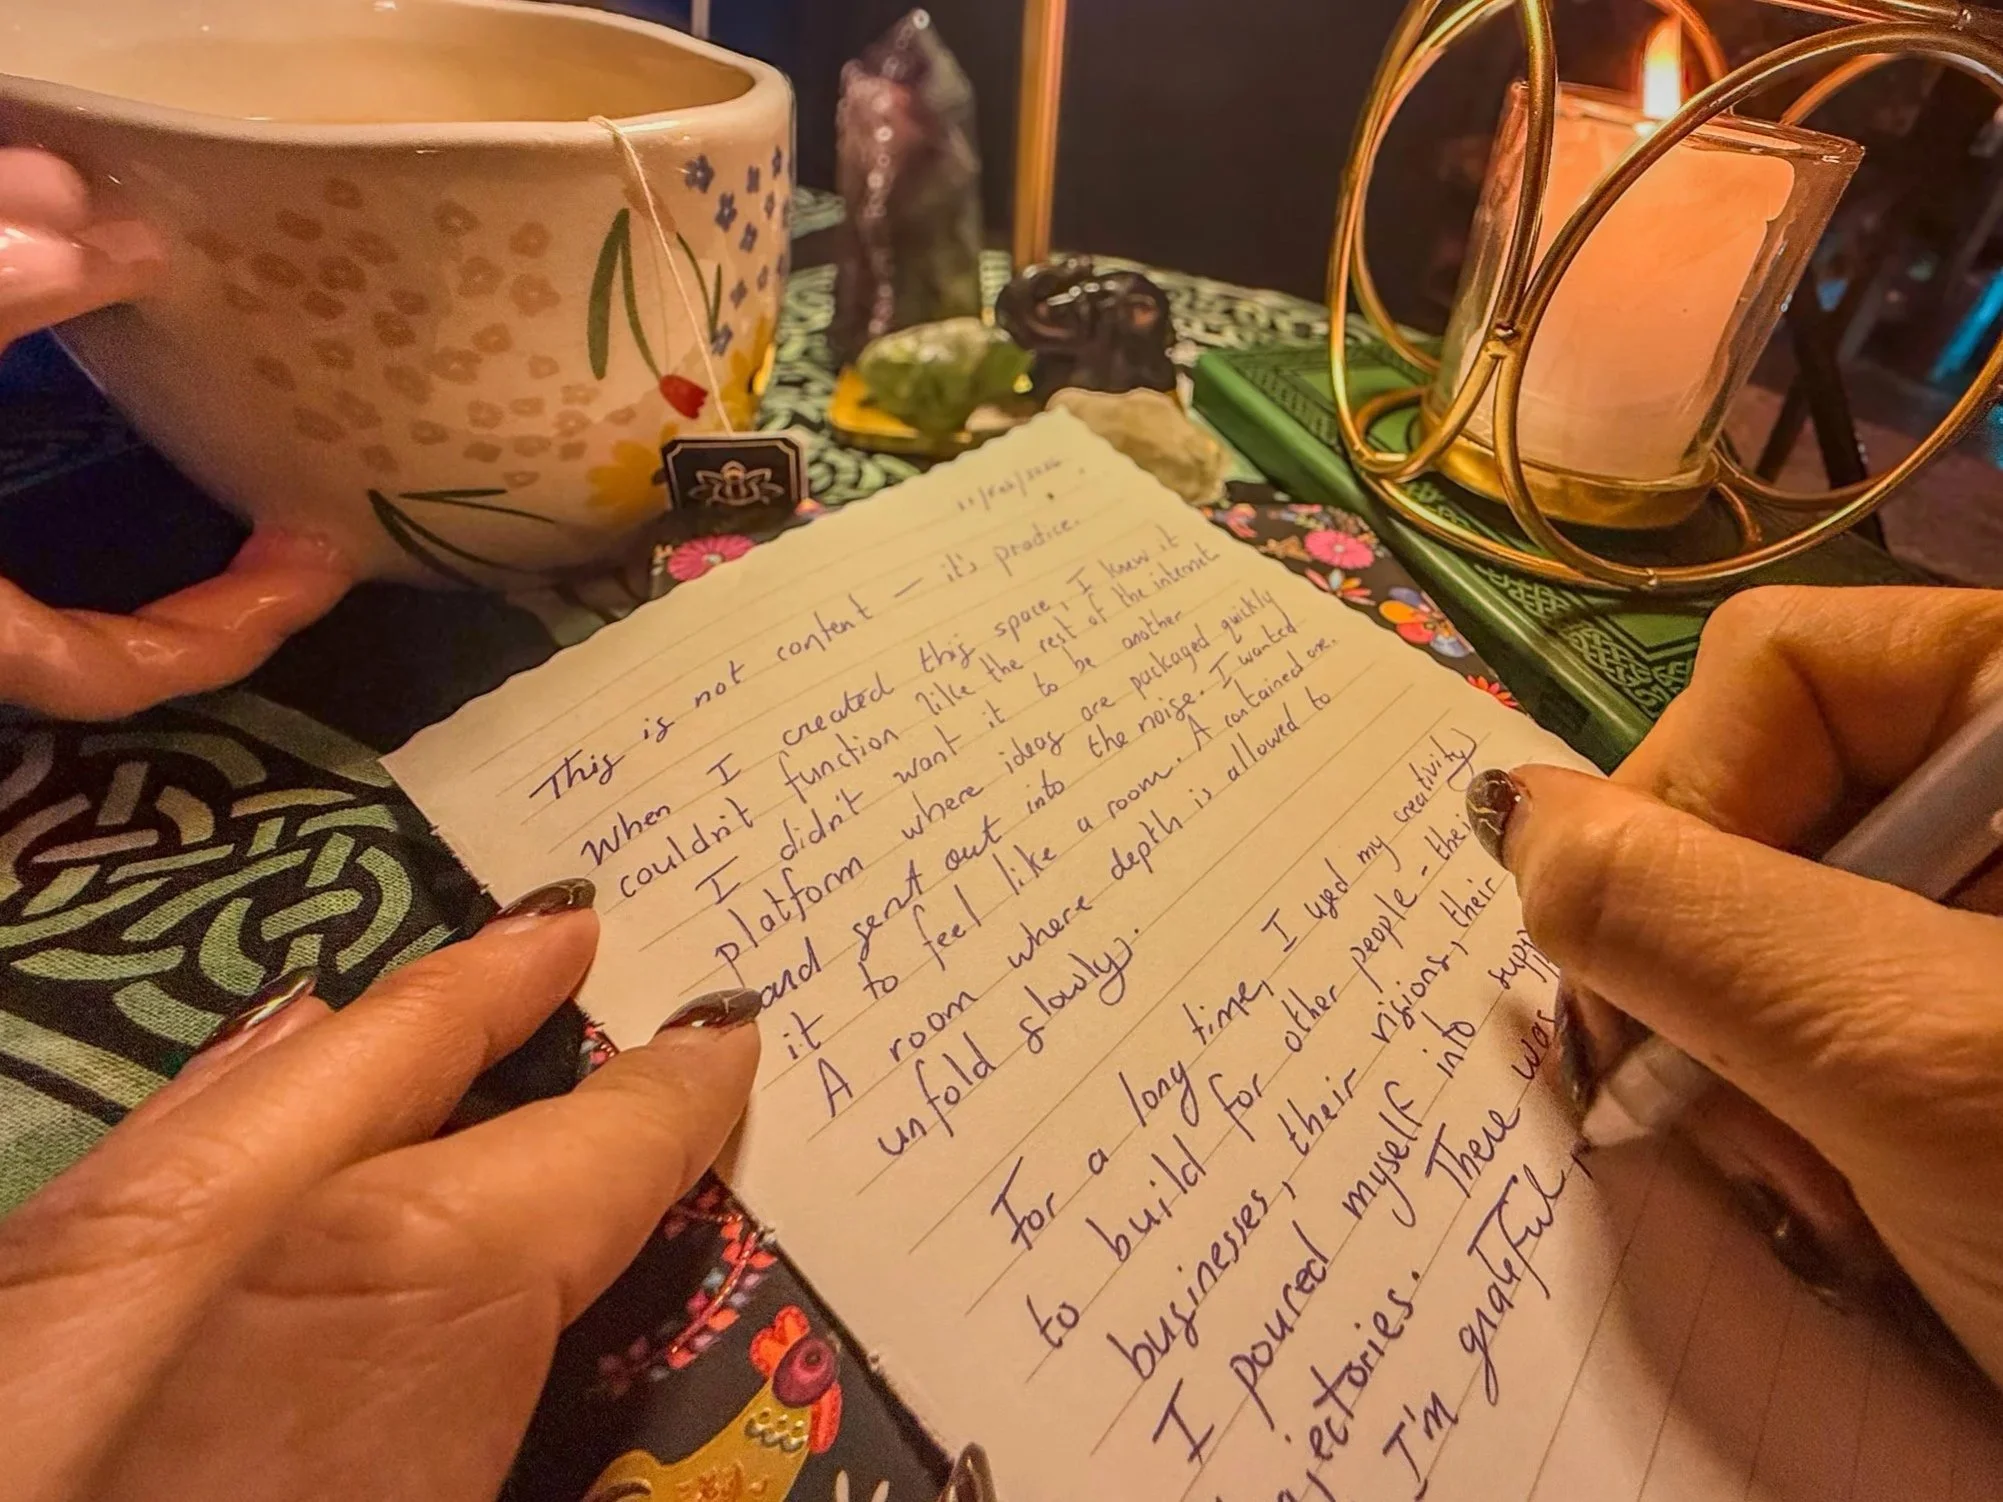 This is not content — it's practice.
When I created this space, I knew it
couldn't function like the rest of the internet
I didn't want it to be another
platform where ideas are packaged quickly
and sent out into the noise. I wanted
it to feel like a room. A contained one.
A room where depth is allowed to
unfold slowly.
For a long time, I used my creativity
to build for other people - their
businesses, their visions, their
I poured myself into
There was
I'm grateful,